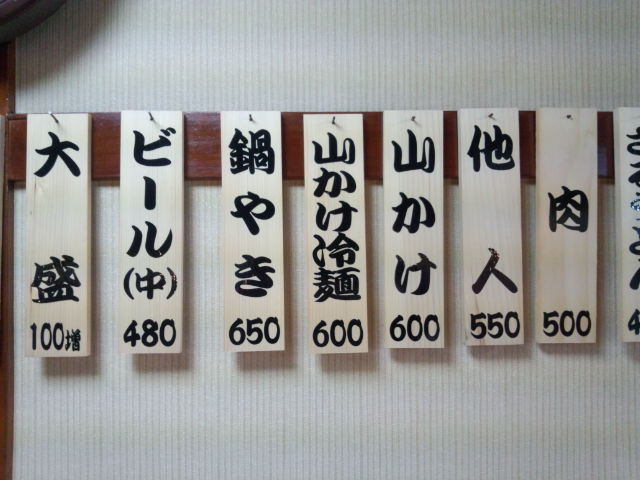 肉
500
他人
550
山かけ
600
山かけ冷麺
600
鍋やき
650
ビール(中)
480
大盛
100増